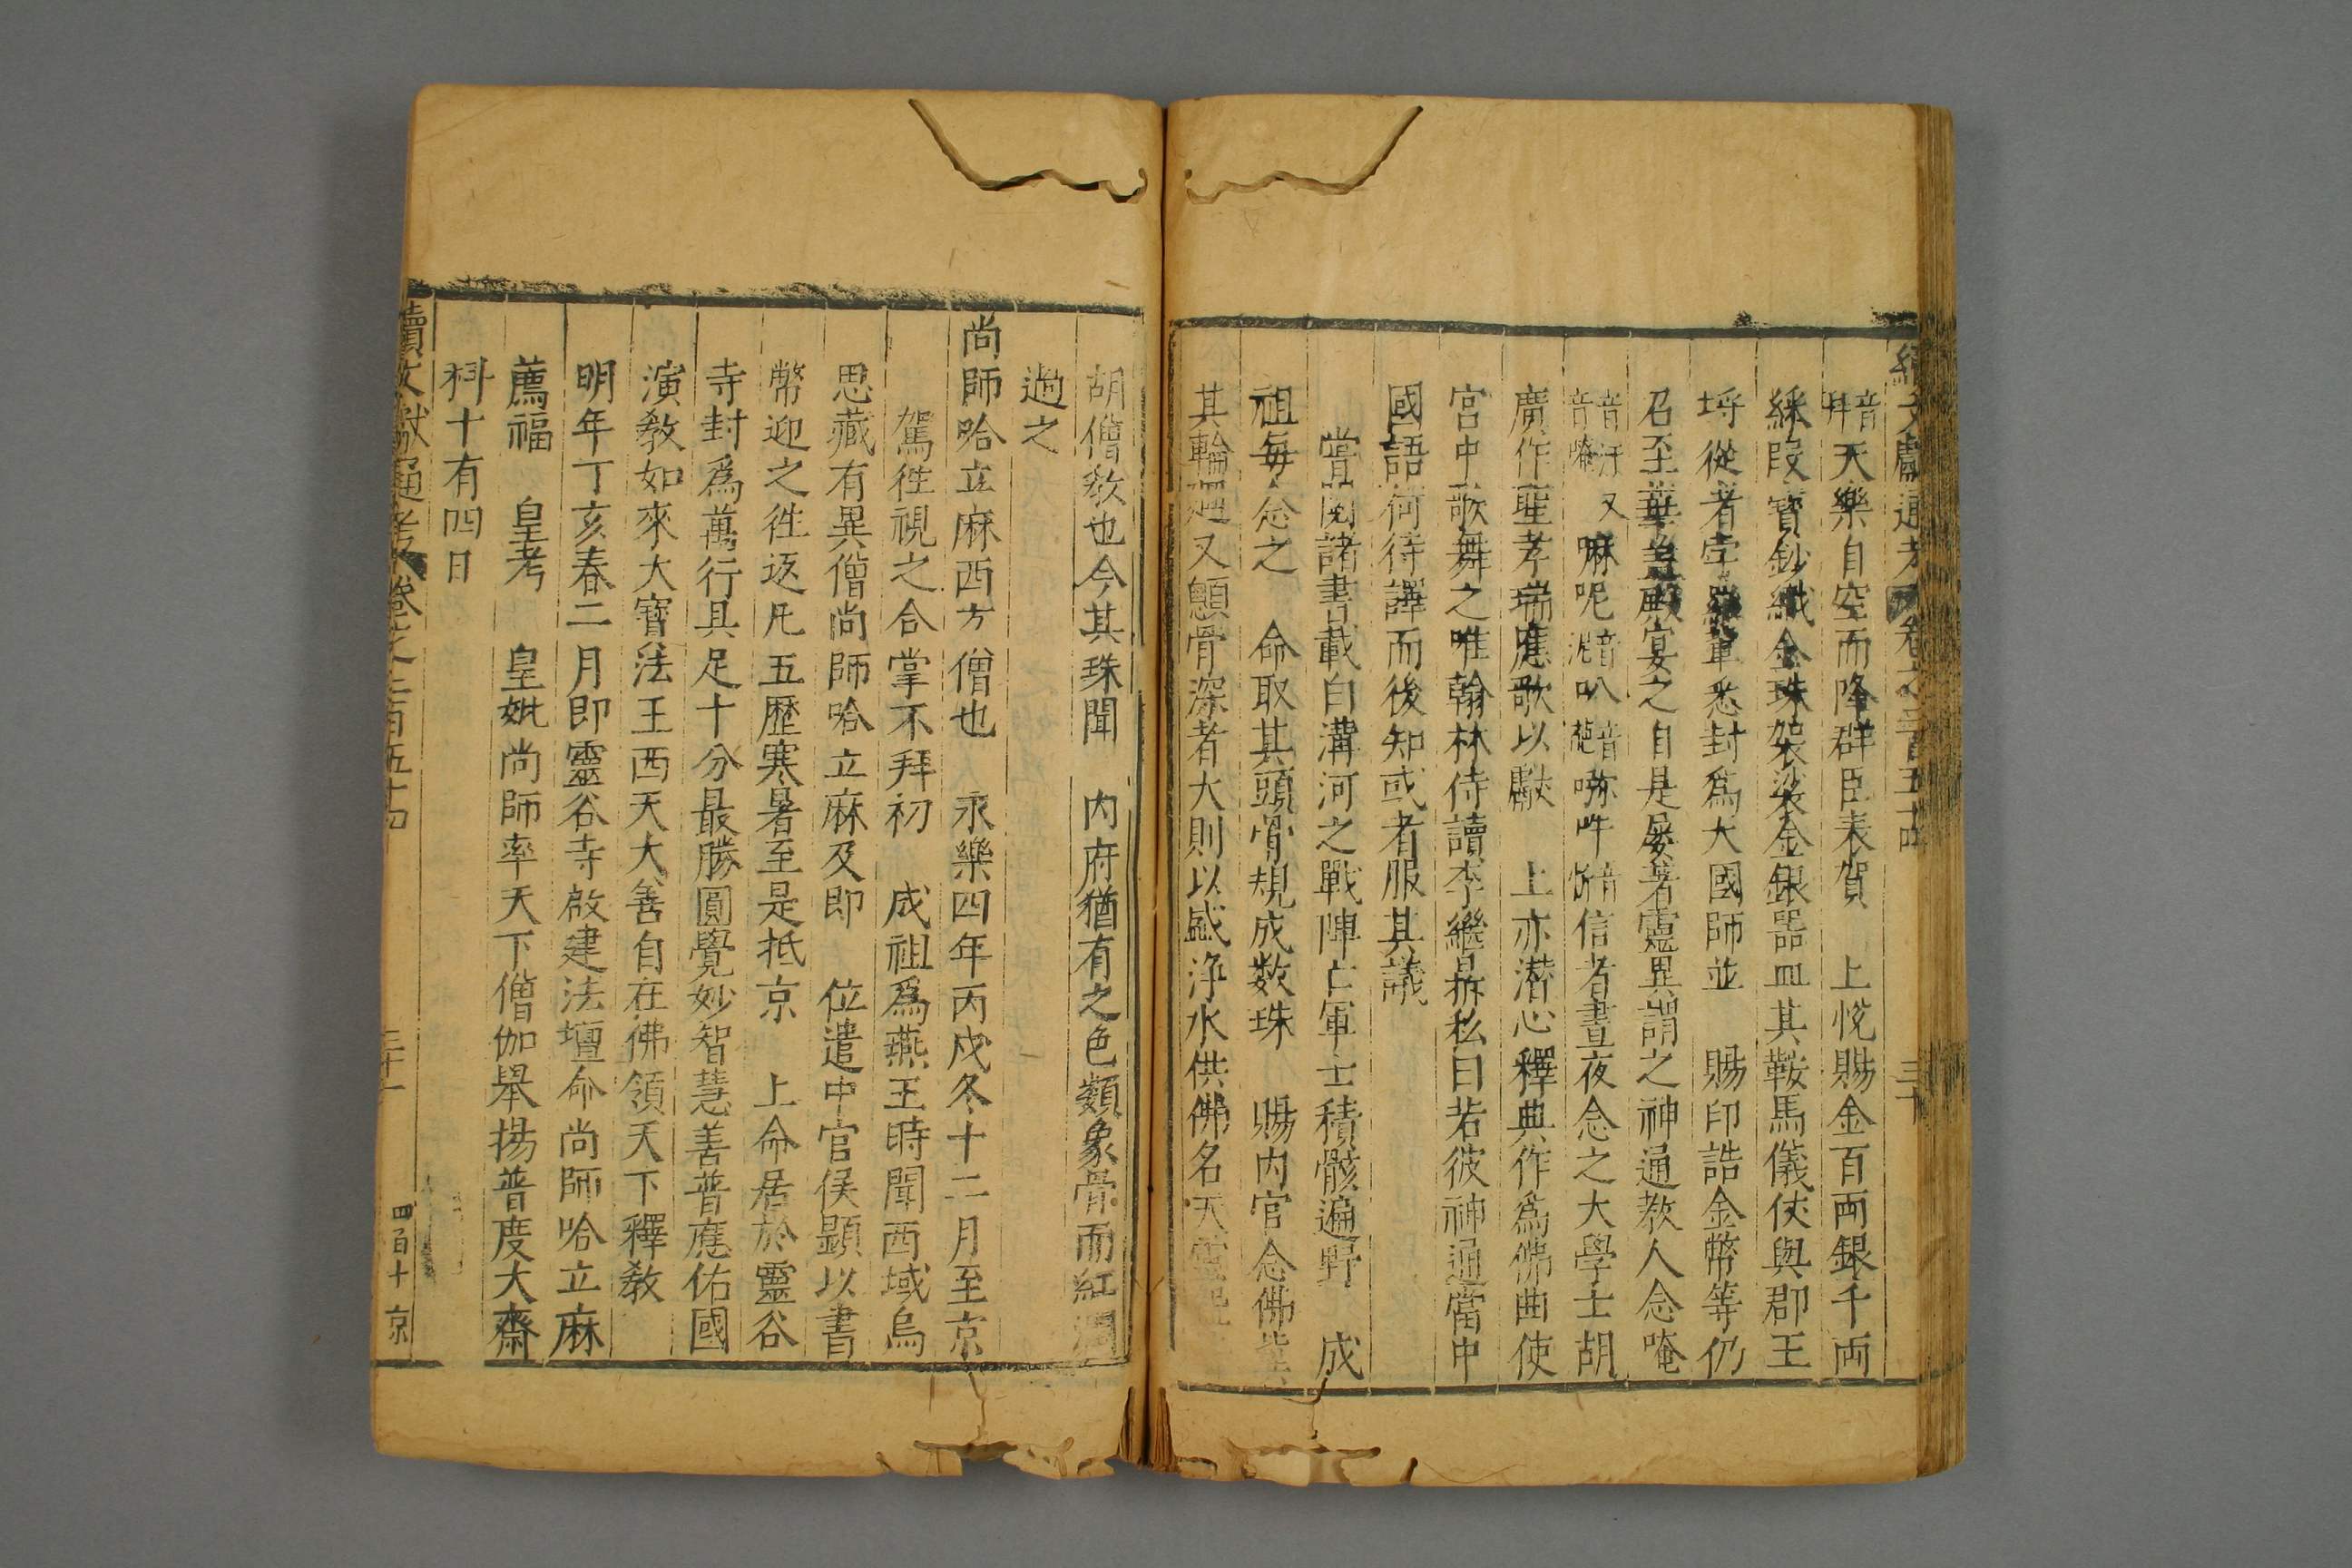 續文獻通考 卷之二百五十四 三十
音拜天樂自空而降群臣表賀 上悅賜金百両銀千両
綵叚寶鈔織金珠袈裟金銀器皿其鞍馬儀仗與郡王
埒從者孛羅軰悉封爲大國師並 賜印誥金幣等仍
召至華盖殿宴之自是屡著靈異謂之神通教人念唵
音汙又音唵嘛呢音泥叭音葩𠺗吽音信者晝夜念之大學士胡
廣作聖孝瑞應歌以獻 上亦潜心釋典作爲佛曲使
宮中歌舞之唯翰林侍讀李繼鼎私曰若彼神通當中
國語何待譯而後知或者服其議
嘗閱諸書載白溝河之戰陣亡軍士積骸遍野 成
祖每念之 命取其頭骨規成数珠 賜内官念佛
其輪廻又顱骨深者大則以盛浄水供佛名天靈
胡僧敎也今其珠聞 内府猶有之色類象骨而紅潤
過之
尚師哈立麻西方僧也 永樂四年丙戌冬十二月至京
駕徃視之合掌不拜初 成祖爲燕王時聞西域烏
思藏有異僧尚師哈立麻及即 位遣中官侯顯以書
幣迎之徃返凡五歷寒暑至是抵京 上命居於靈谷
寺封爲萬行具足十分最勝圓覺妙智慧善普應佑國
演敎如來大寶法王西天大善自在佛領天下釋敎
明年丁亥春二月即靈谷寺啟建法壇命尚師哈立麻
薦福 皇考 皇妣尚師率天下僧伽舉揚普度大齋
科十有四日
續文獻通考 卷之二百五十四 三十一 四百十 京